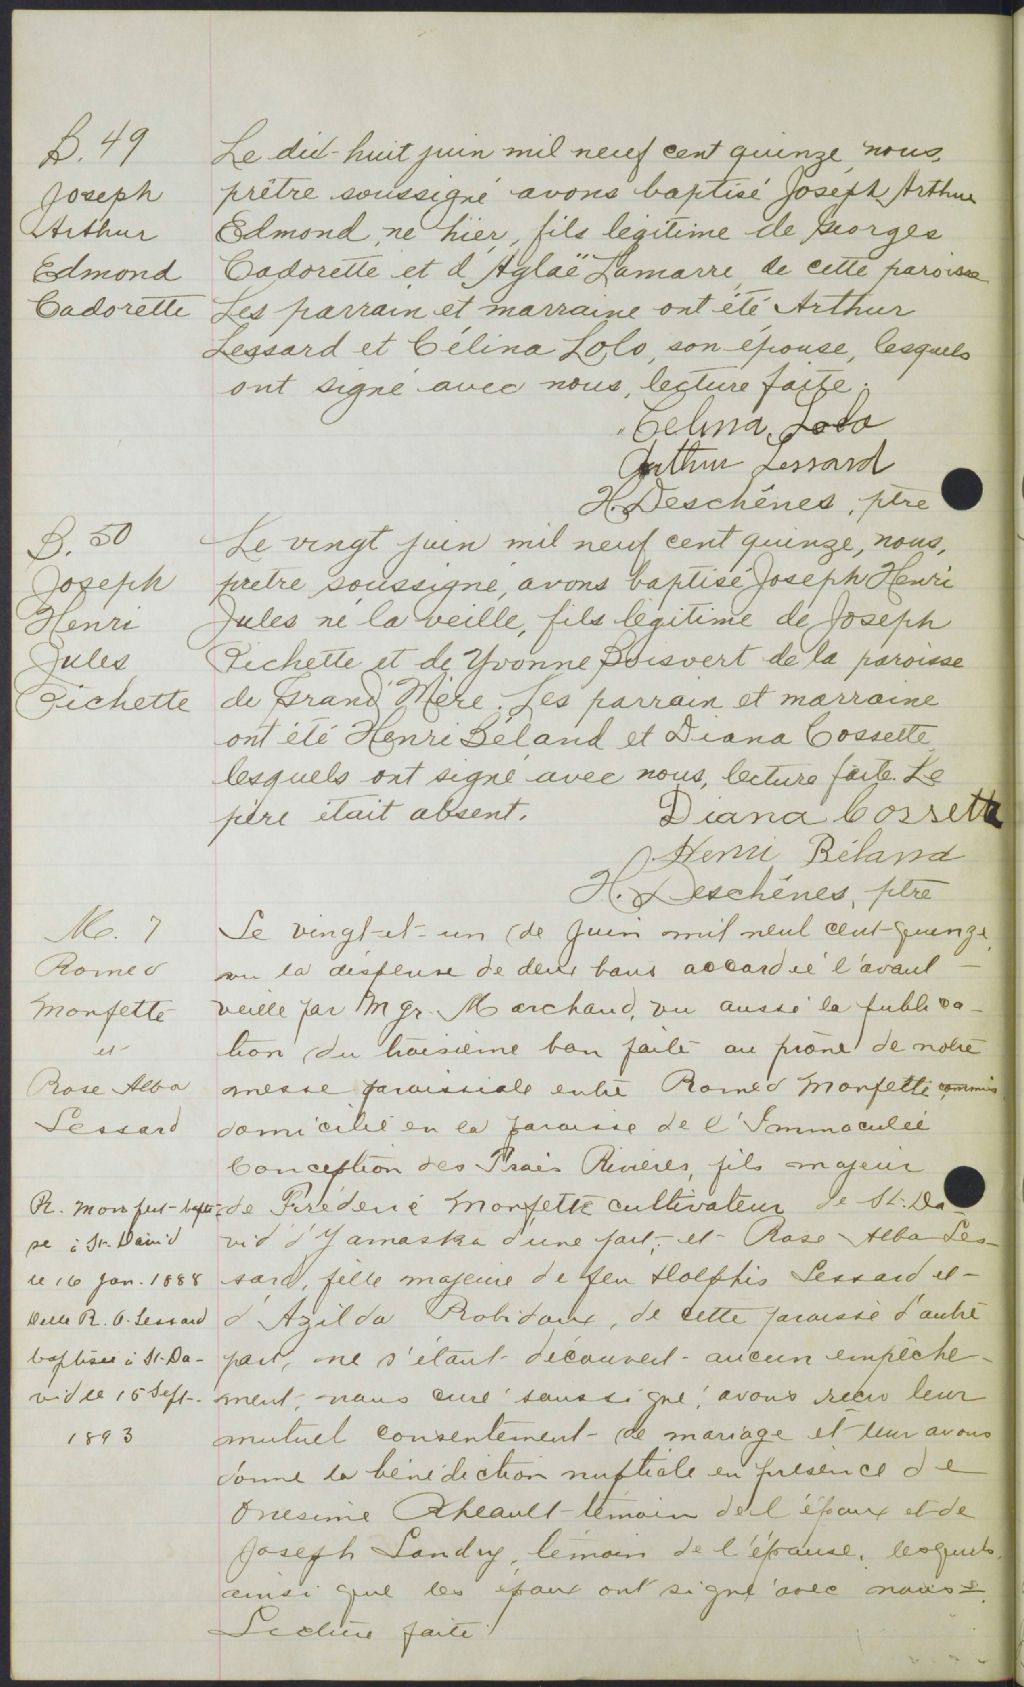 B. 49
Joseph
Arthur
Edmond
Cadorette
Le dix-huit juin mil neuf cent quinze, nous,
prêtre soussigné avons baptisé Joseph Arthur
Edmond, né hier, fils légitime de Georges
Cadorette et d'Aglaë Lamarre, de cette paroisse
Les parrain et marraine ont été Arthur
Lessard et Célina Lolo, son épouse, lesquels
ont signé avec nous, lecture faite.
Celina Lolo
Arthur Lessard
H. Deschênes, ptre
B. 50
Joseph
Henri
Jules
Pichette
Le vingt juin mil neuf cent quinze, nous,
prêtre soussigné, avons baptisé Joseph Henri
Jules né la veille, fils légitime de Joseph
Pichette et de Yvonne Boisvert de la paroisse
de Grand'Mère. Les parrain et marraine
ont été Henri Béland et Diana Cossette
lesquels ont signé avec nous, lecture faite. Le
père était absent.
Diana Cossette
Henri Béland
H. Deschênes, ptre
M. 7
Romeo
Monfette
et
Rose Alba
Lessard
R. Monfett bapti-
se à St. David
le 16 Jan. 1888
Delle R. A. Lessard
baptisée à St-Da-
vid le 15 Sept.
1893
Le vingt-et-un de Juin mil neuf cent-quinze,
vu la dispense de deux bans accordée l'avant-
veille par Mgr. Marchand, vu aussi la publica-
tion du troisième ban faite au prône de notre
messe paroissiale entre Romeo Monfette, commis
domicilié en la paroisse de l'Immaculée
Conception des Trois Rivières, fils majeur
de Fréderic Monfette cultivateur de St. Da-
vid d'Yamaska d'une part, et Rose Alba Les-
sard, fille majeure de feu Dolphis Lessard et
d'Azilda Robidoux, de cette paroisse d'autre
part, ne s'étant découvert aucun empêche-
ment, nous curé soussigné, avons reçu leur
mutuel consentement de mariage et leur avons
donné la bénédiction nuptiale en présence de
Onesime Rheault témoin de l'époux et de
Joseph Landry, témoin de l'épouse, lesquels,
ainsi que les époux ont signé avec nous.
Lecture faite